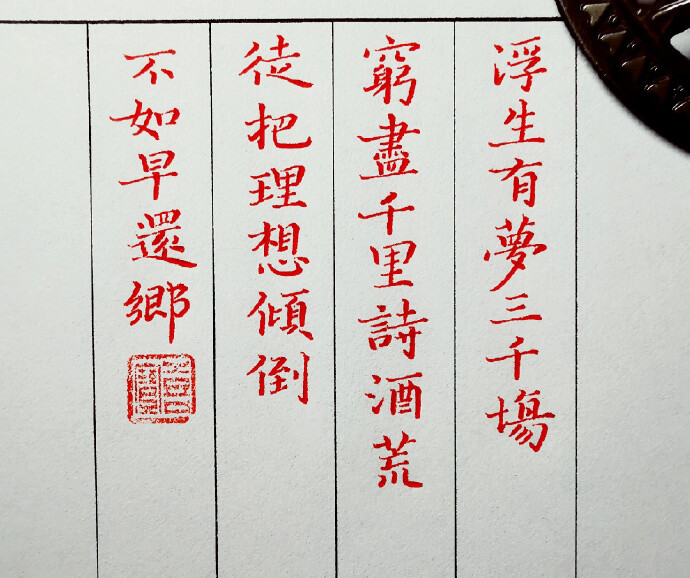 浮生有夢三千場
窮盡千里詩酒荒
徒把理想傾倒
不如早還鄉